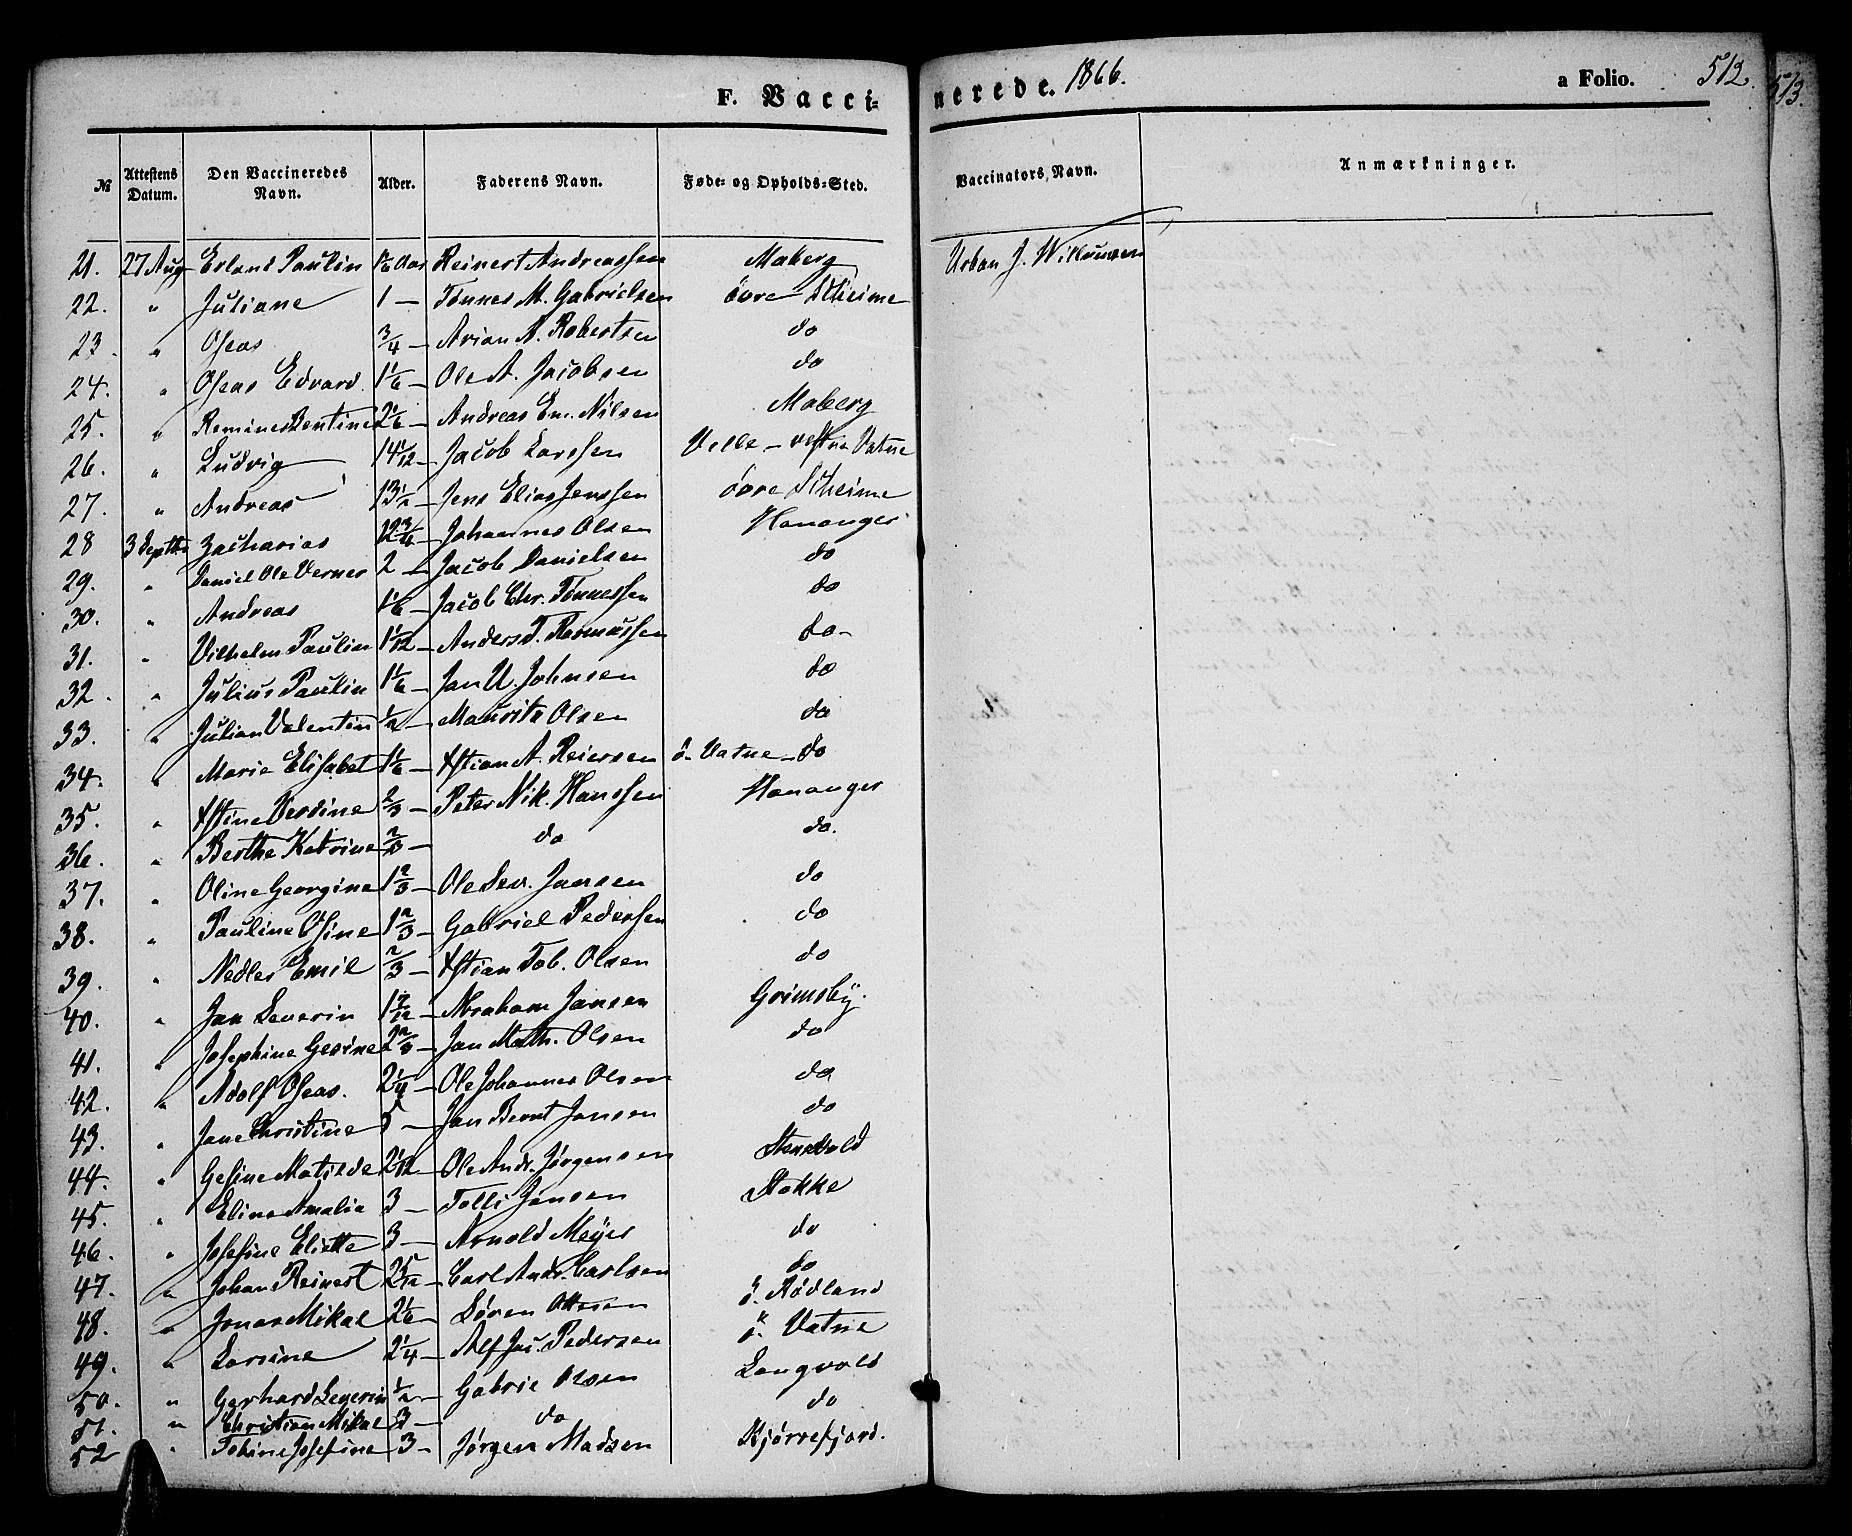 F. Vaccinerede. 1866. a Folio. 512. 513.
№ Attestens Datum. Den Vaccineredes Navn. Alder. Faderens Navn. Føde- og Opholds-Sted. Vaccinators Navn. Anmærkninger.
21. 27 Aug Erland Paulin 1 1/6 Aar Reinert Andreassen Maberg Urban J.
22. " Juliane 1 — Tønnes M. Gabrielsen övre Skeime
23. " Oseas 3/4 — Arian A. Robertsen do
24. " Oseas Edvard. 1 1/6 — Ole A. Jacobsen do
25. " 2 1/6 — Andreas Em. Nilsen Maberg
26. " Ludvig 14 1/12 — Jacob Larssen Velle — vestre Vatne
27. " Andreas 13 1/2 — Jens Elias Jenssen övre Skeime
28 3 Septbr Zacharias Johannes Olsen Hananger
29. " Daniel Ole Verner 2 — Jacob Danielsen do
30. " Andreas 1 1/6 — Jacob Chr. Tønnessen do
31. " Vilhelm Paulin 1 1/12 — Anders T. Rasmussen do —
32. " Julius Paulin 1 1/6 — Jan U. Johnsen do
33. " Julian Valentin 1/2 — Mauritz Olsen do
34. " Marie Elisabet 1 1/6 — Xstian A. Reiersen ö. Vatne — do
35. " Xstine Verdine 2/3 — Peter Nik. Hanssen Hananger
36. " Berthe Katrine 2/3 — do do.
37. " Oline Georgine 1 2/3 — Ole Sev. Jansen do
38. " Pauline Osine 1 2/3 — Gabriel Pedersen do
39. " Nedler Emil 2/3 — Xstian Tob. Olsen do
40. " Jan Severin 1 7/12 — Abraham Jansen Grimsby.
41. " Josephine Gesine 2 2/3 — Jan Math. Olsen do
42. " Adolf Oseas. 2 1/4 — Ole Johannes Olsen do
43. " Jane Christine 5 — Jan Bernt Jansen do
44. " Gesine Matilde 2 1/12 — Ole Andr. Jørgensen
45. " Eline Amalia 3 — Tolli Jansen Stokke
46. " Josefine Eliette 3 — Arnold Meyer do
47. " Johan Reinert 2 5/12 — Carl Andr. Carlsen do
48. " Jonas Mikal 2 1/6 — Søren Ottesen ö. Rødland
49. " Larsine 2 1/4 — Alf Jac. Pedersen ö. Vatne
50. " Gerhard Severin 1/2 — Gabriel Olsen Langvold
51. " Christian Mikal 3 — do do
52 " Tobine Josefine 3 — Jørgen Madsen Kjørrefjord.